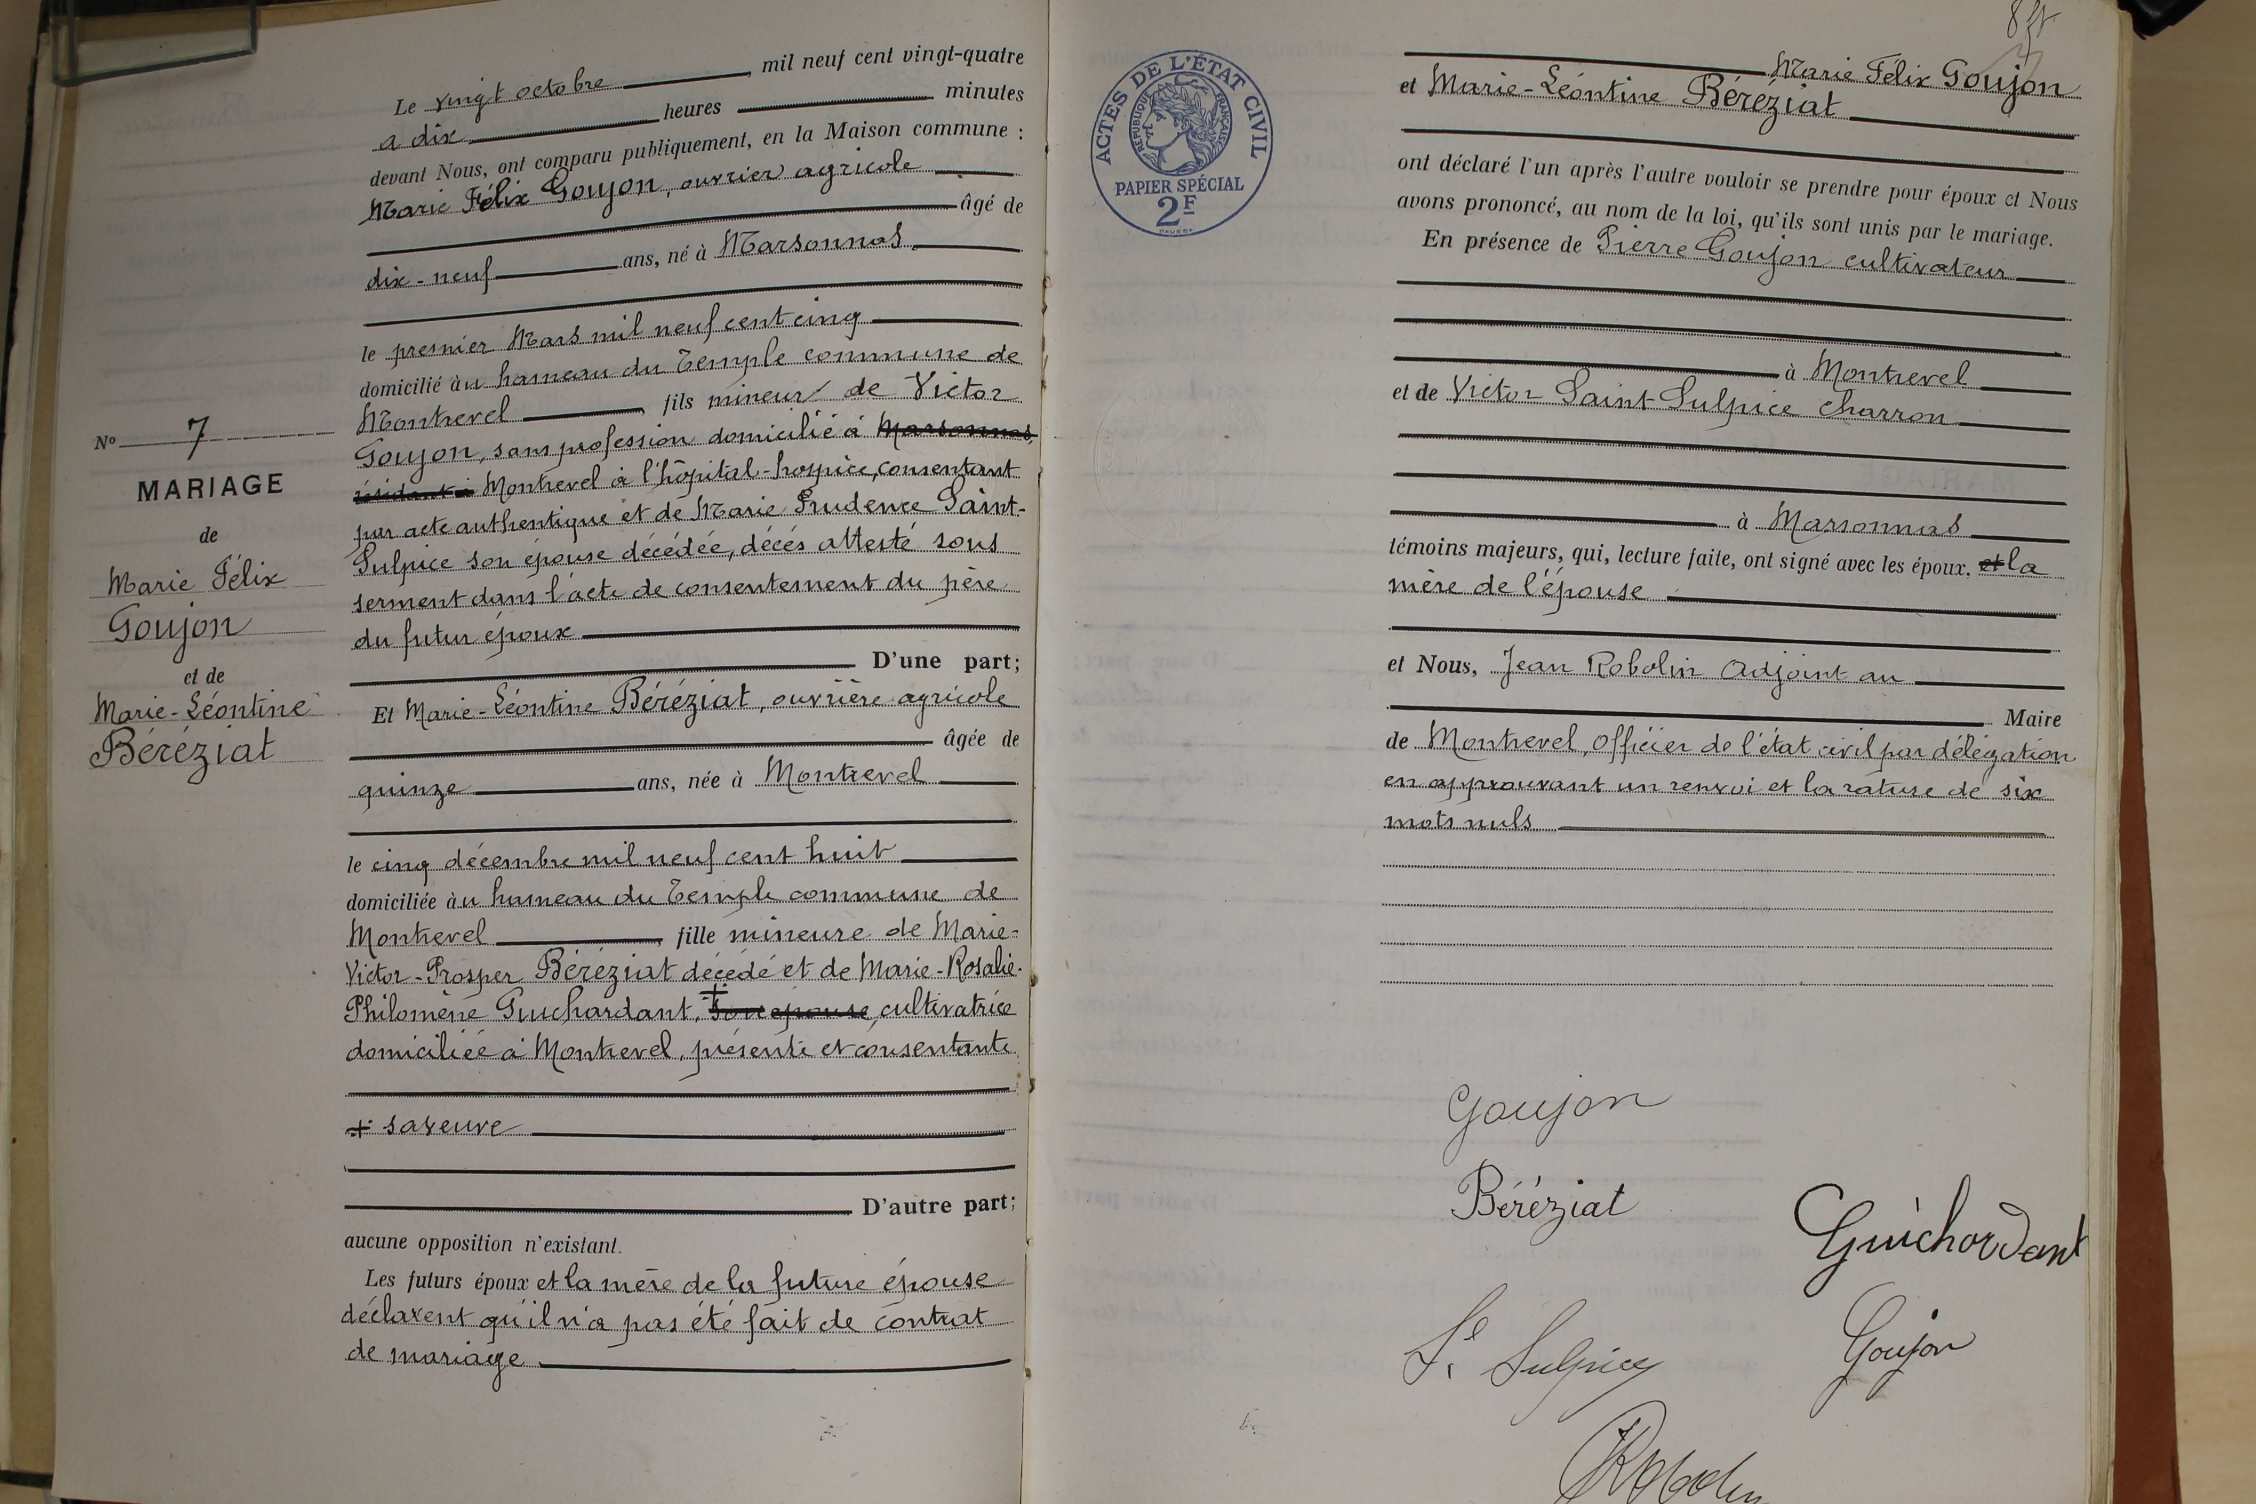 N° 7
MARIAGE
de
Marie Félix
Goujon
et de
Marie-Léontine
Béréziat
Le vingt octobre mil neuf cent vingt-quatre
a dix heures minutes
devant Nous, ont comparu publiquement, en la Maison commune :
Marie Félix Goujon, ouvrier agricole
âgé de
dix-neuf ans, né à Marsonnas
le premier Mars mil neuf cent cinq
domicilié àu hameau du Temple commune de
Montrevel fils mineur de Victor
Goujon, sans profession domicilié à Marsonnas,
résidant à Montrevel à l'hôpital-hospice, consentant
par acte authentique et de Marie Prudence Saint-
Sulpice son épouse décédée, décès attesté sous
serment dans l'acte de consentement du père
du futur époux
D'une part;
Et Marie-Léontine Béréziat, ouvrière agricole
âgée de
quinze ans, née à Montrevel
le cinq décembre mil neuf cent huit
domiciliée àu hameau du Temple commune de
Montrevel fille mineure de Marie-
Victor-Prosper Béréziat décédé et de Marie-Rosalie-
Philomène Guichardant, + son épouse, cultivatrice
domiciliée à Montrevel, présente et consentante
+ sa veuve
D'autre part;
aucune opposition n'existant.
Les futurs époux et la mère de la future épouse
déclarent qu'il n'a pas été fait de contrat
de mariage
ACTES DE L'ÉTAT CIVIL
RÉPUBLIQUE FRANÇAISE
PAPIER SPÉCIAL
2F
Marie Félix Goujon
et Marie-Léontine Béréziat
ont déclaré l'un après l'autre vouloir se prendre pour époux et Nous
avons prononcé, au nom de la loi, qu'ils sont unis par le mariage.
En présence de Pierre Goujon cultivateur
à Montrevel
et de Victor Saint Sulpice charron
à Marsonnas
témoins majeurs, qui, lecture faite, ont signé avec les époux, et la
mère de l'épouse
et Nous, Jean Robolin Adjoint au
Maire
de Montrevel, officier de l'état civil par délégation
en approuvant un renvoi et la rature de six
mots nuls
Goujon
Béréziat
Guichardant
St Sulpice
Goujon
Robolin